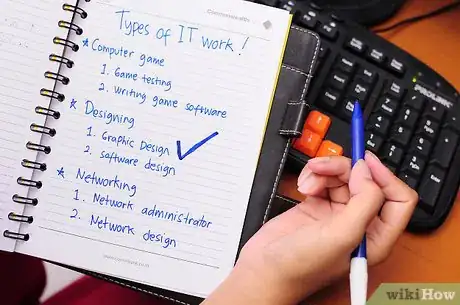 Types of IT work!
* Computer game
1. Game testing
2. Writing game software
* Designing
1. Graphic Design ✓
2. Software design
* Networking
1. Network administrator
2. Network design
PROLINK
wikiHow